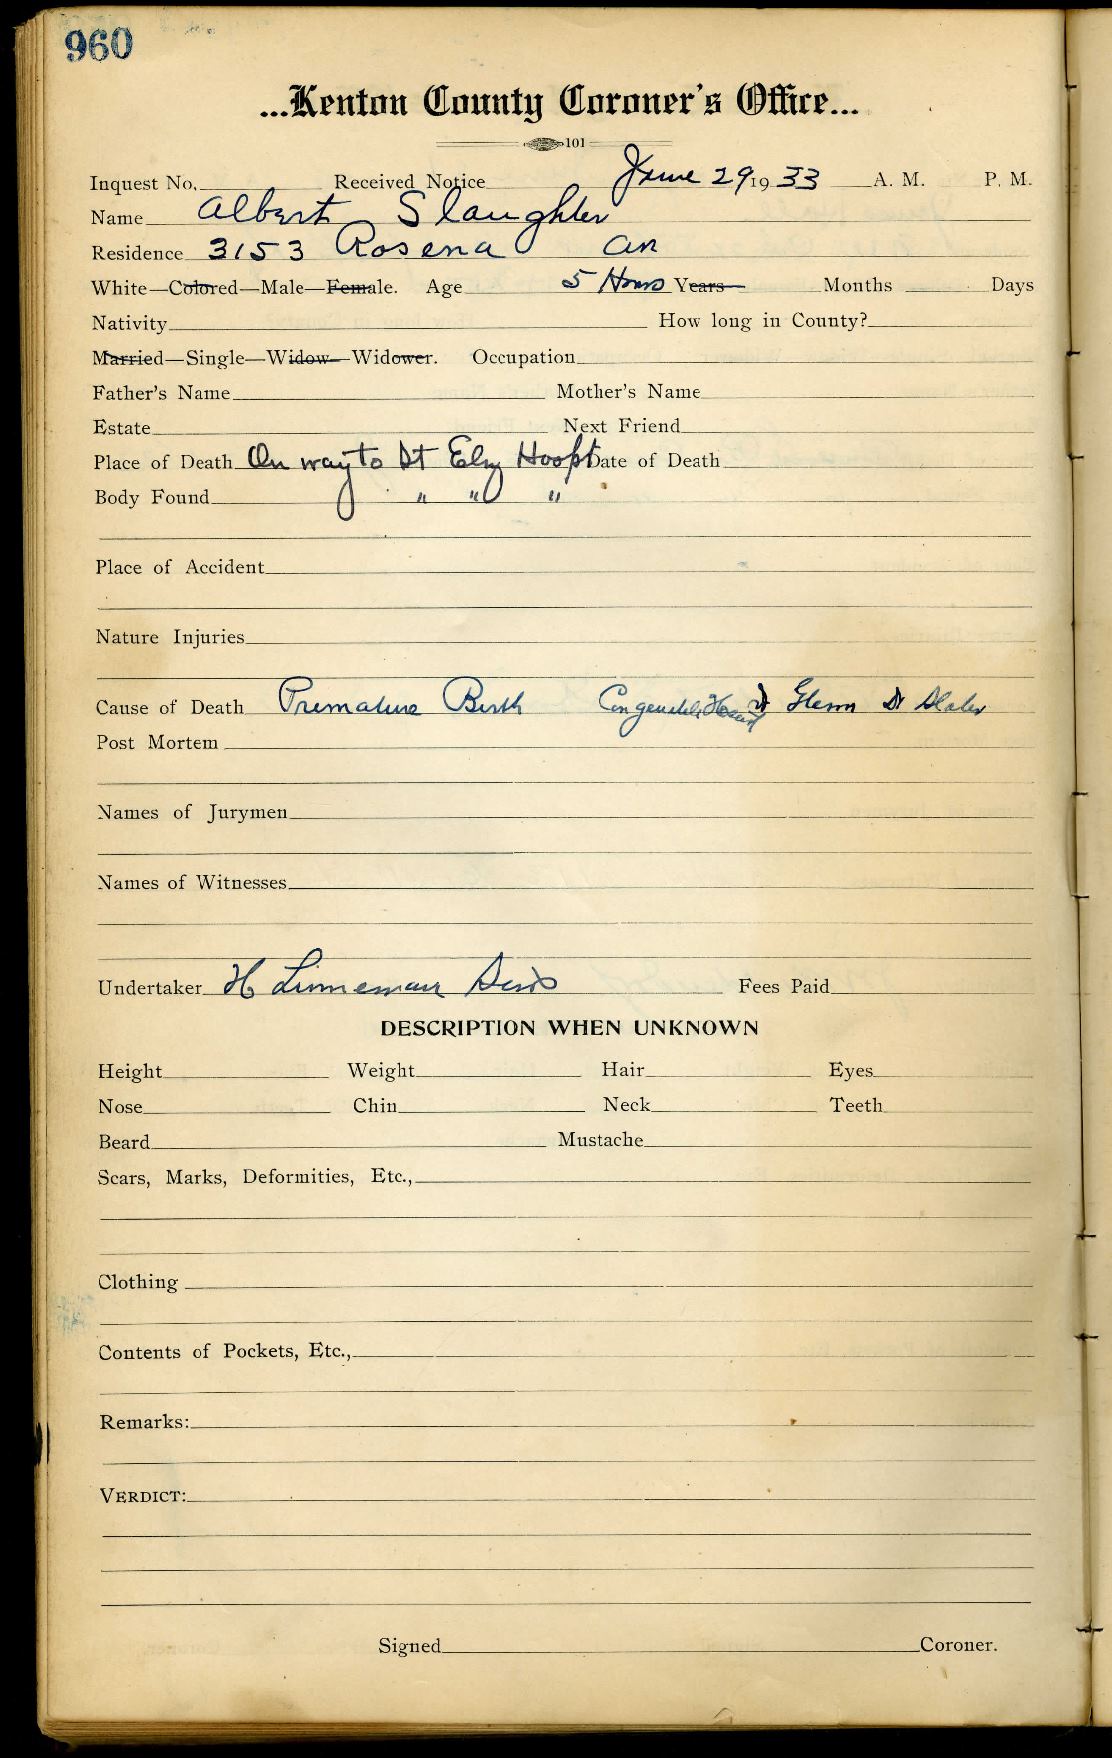 960
...Kenton County Coroner's Office...
101
Inquest No. Received Notice June 29 1933 A. M. P. M.
Name Albert Slaughter
Residence 3153 Rosena
White—Colored—Male—Female. Age 5 Hours Years Months Days
Nativity How long in County?
Married—Single—Widow—Widower. Occupation
Father's Name Mother's Name
Estate Next Friend
Place of Death On way to St Elz Hospt Date of Death
Body Found " " "
Place of Accident
Nature Injuries
Cause of Death Premature Birth Heart Dr Glenn Dr Slater
Post Mortem
Names of Jurymen
Names of Witnesses
Undertaker H Linneman Sons Fees Paid
DESCRIPTION WHEN UNKNOWN
Height Weight Hair Eyes
Nose Chin Neck Teeth
Beard Mustache
Scars, Marks, Deformities, Etc.,
Clothing
Contents of Pockets, Etc.,
Remarks:
VERDICT:
Signed Coroner.